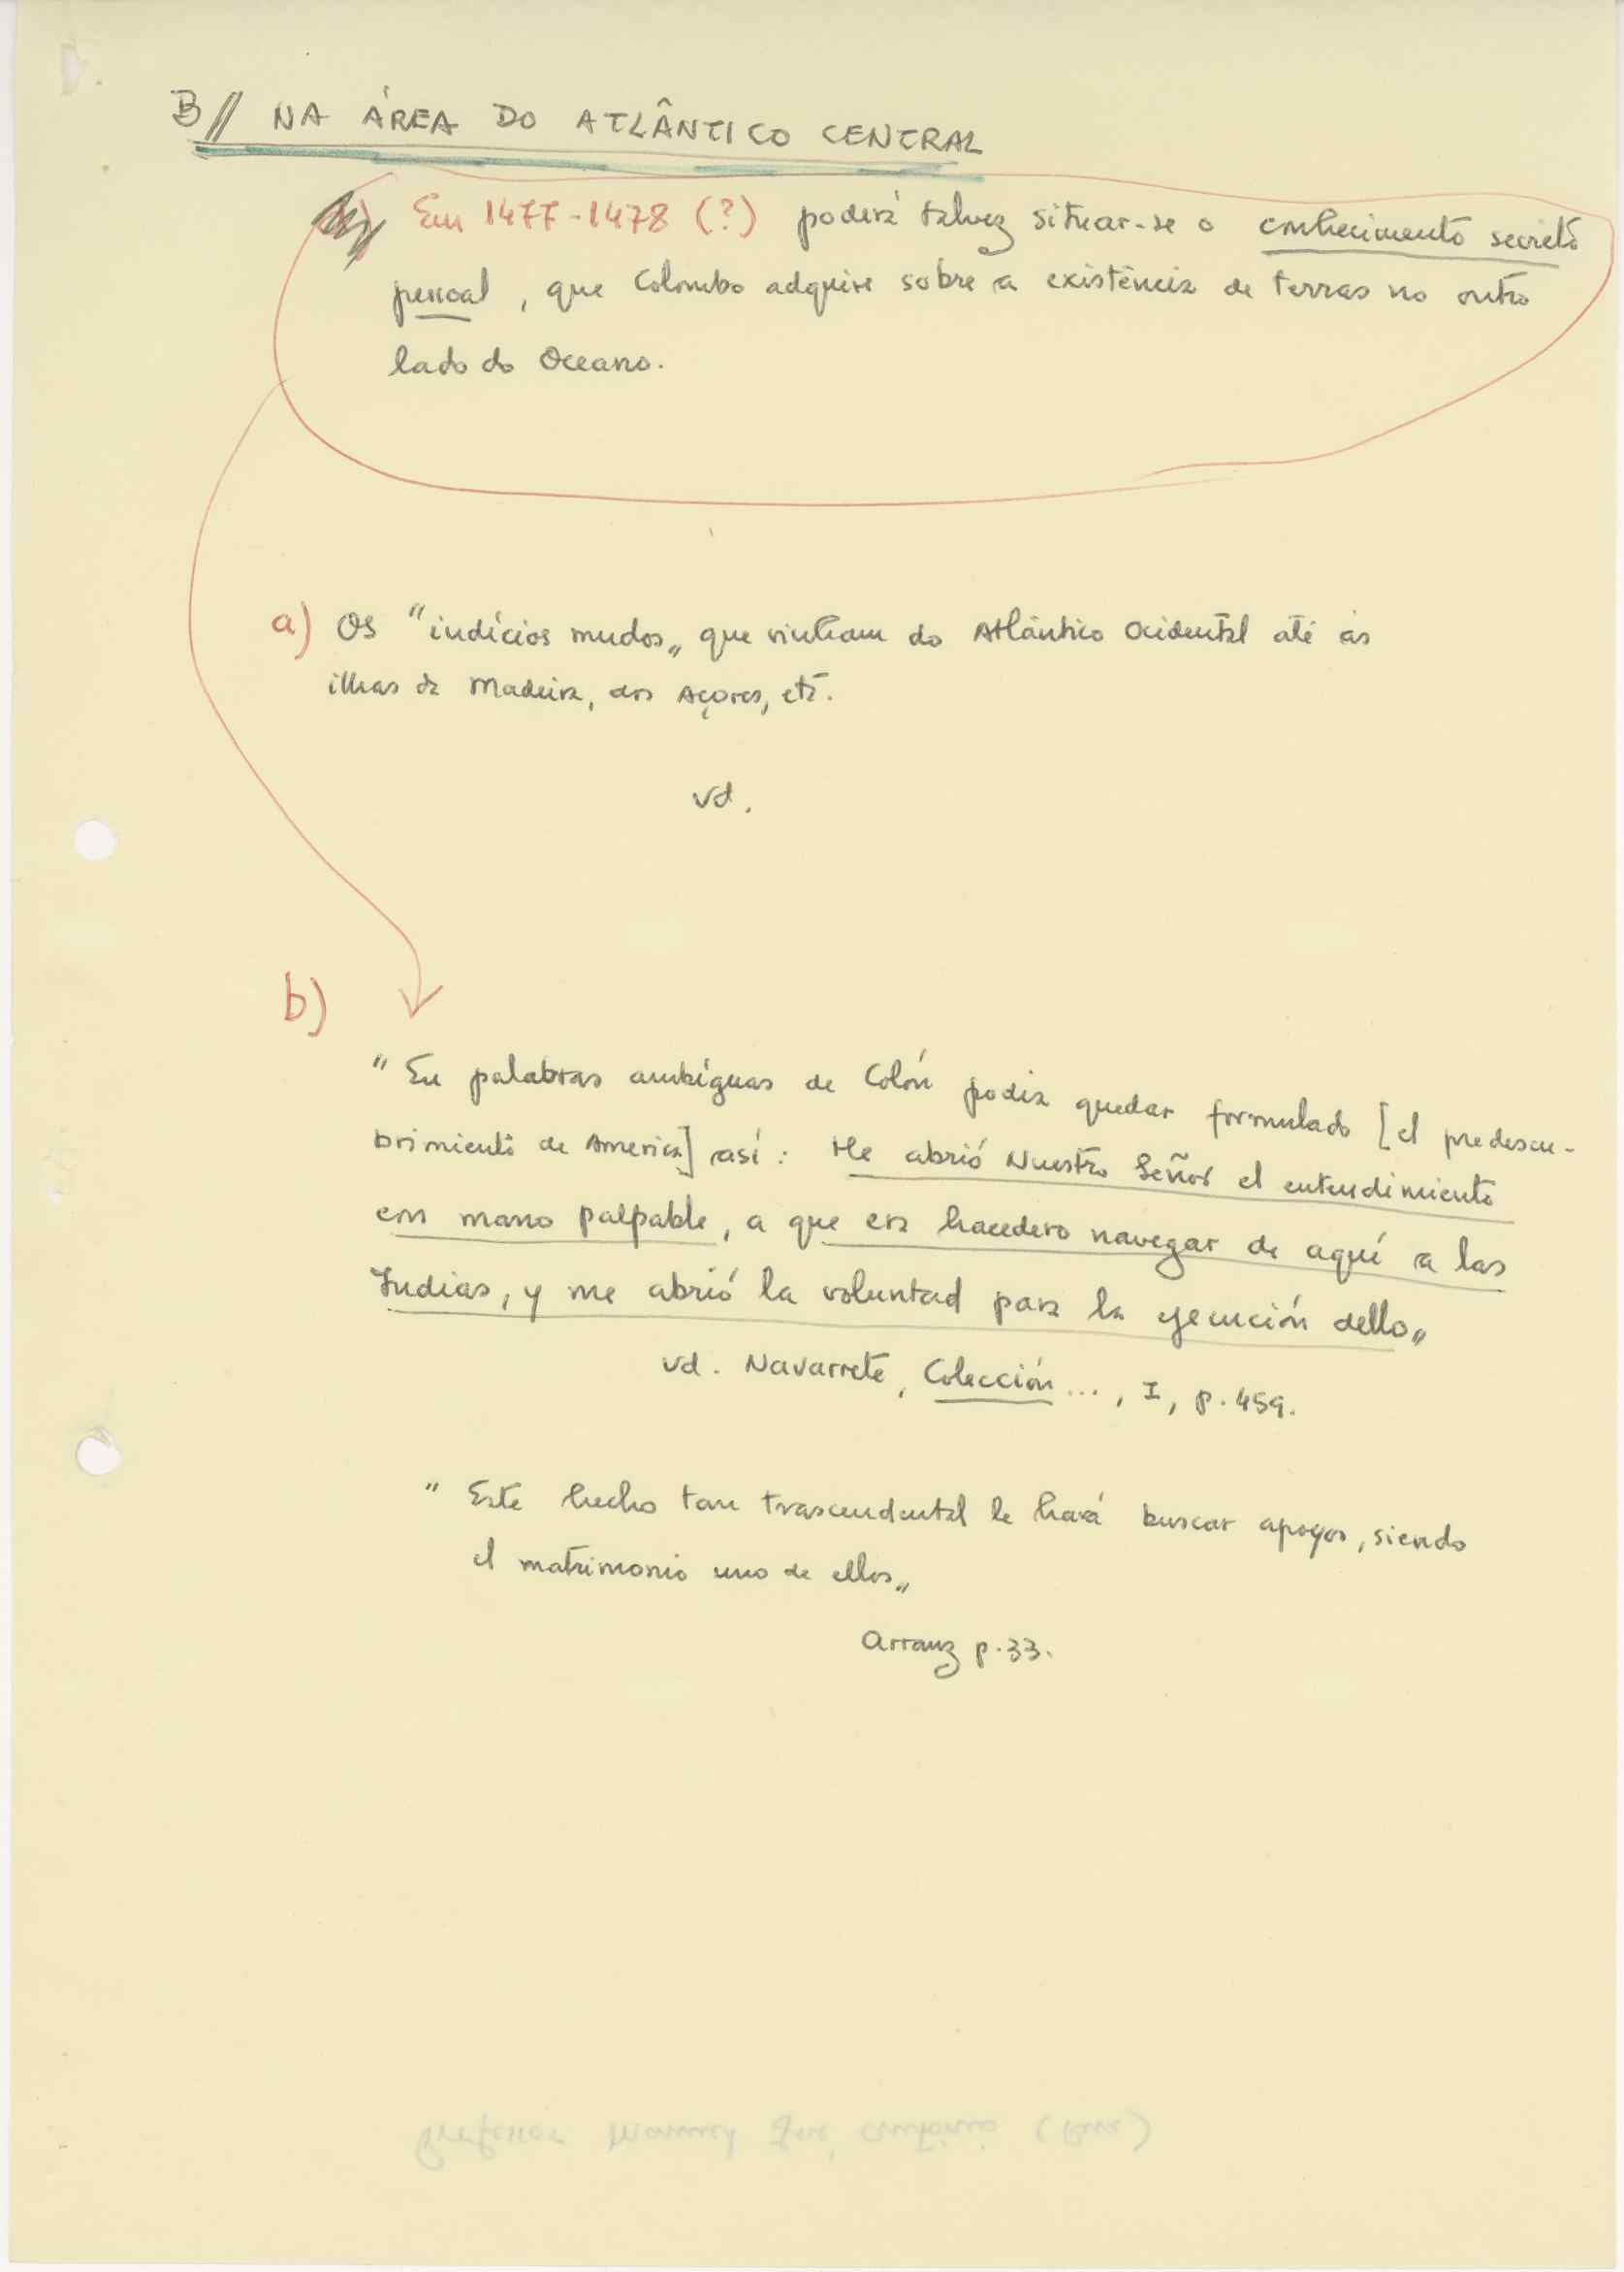 B// NA ÁREA DO ATLÂNTICO CENTRAL
Em 1477-1478 (?) poderá talvez situar-se o conhecimento secreto
pessoal, que Colombo adquire sobre a existência de terras no outro
lado do Oceano.
a) Os "indícios mudos„ que vinham do Atlântico Ocidental até às
ilhas da Madeira, dos Açores, etc.
vd.
b)
"En palabras ambíguas de Colón podia quedar formulado [el predescu-
brimiento de America] así: Me abrió Nuestro Señor el entendimiento
con mano palpable, a que era hacedero navegar de aquí a las
Indias, y me abrió la voluntad para la ejecución dello„
vd. Navarrete, Colección..., I, p. 459.
"Este hecho tan trascendental le hará buscar apoyos, siendo
el matrimonio uno de ellos„
Arranz p. 33.